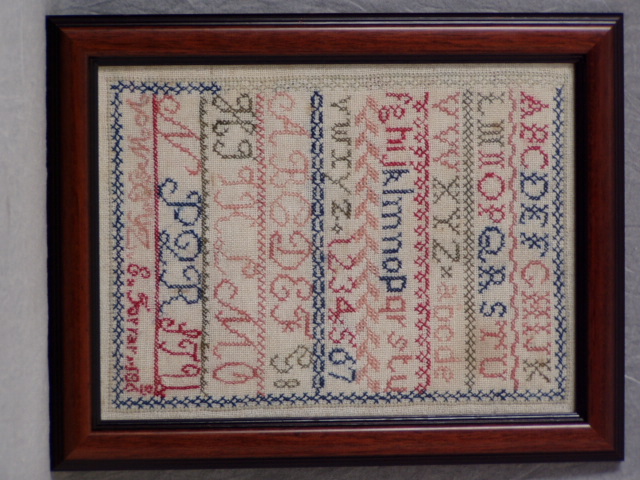 ABCDEFGHIJK
LMNOPQRSTU
VWXYZ*abcde
fghijklmnopqrstu
vwxyz.1234567
ABCDEF
N PQR STU
E. Farrar.